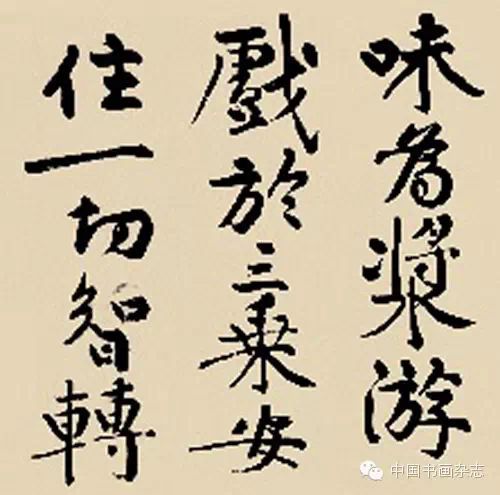 味為漿游
戲於三乗安
住一切智轉
中国书画杂志